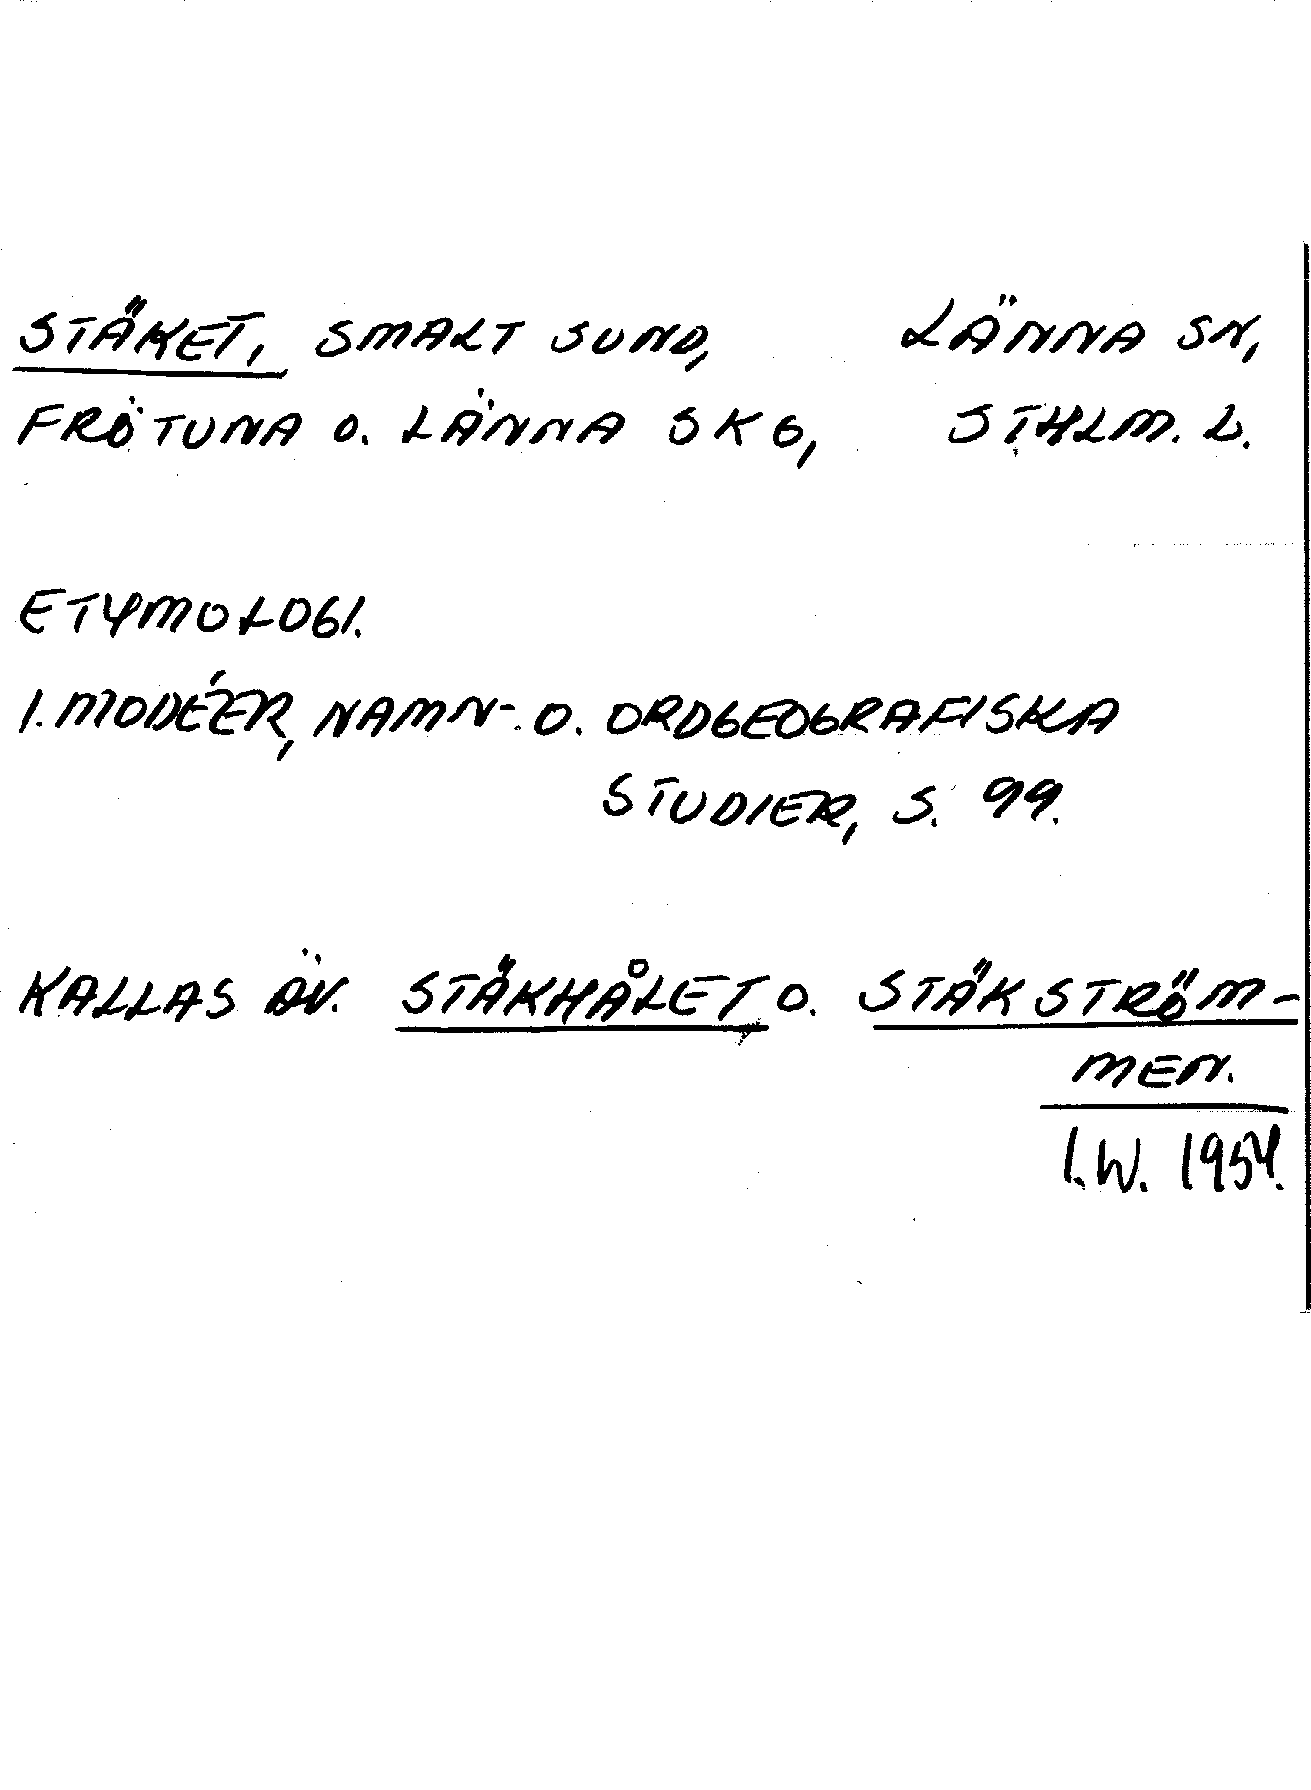 STÄKET, SMALT SUND, LÄNNA SN,
FRÖTUNA O. LÄNNA SKG, STHLM. L.
ETYMOLOGI.
I. MODÉER, NAMN- O. ORDGEOGRAFISKA
STUDIER, S. 99.
KALLAS ÄV. STÄKHÅLET O. STÄKSTRÖM-
MEN.
I.W. 1954.